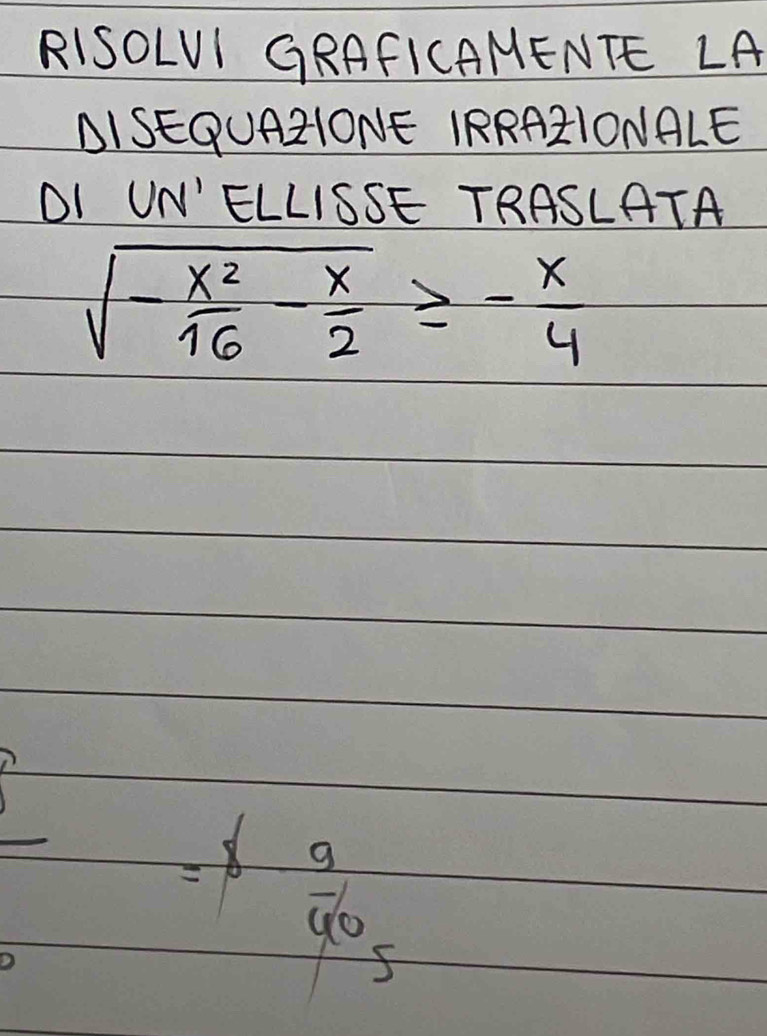 RISOLVI GRAFICAMENTE LA
DISEQUAZIONE IRRAZIONALE
DI UN'ELLISSE TRASLATA
√(-x²/16 - x/2) ≥ -x/4
= 9/10 5